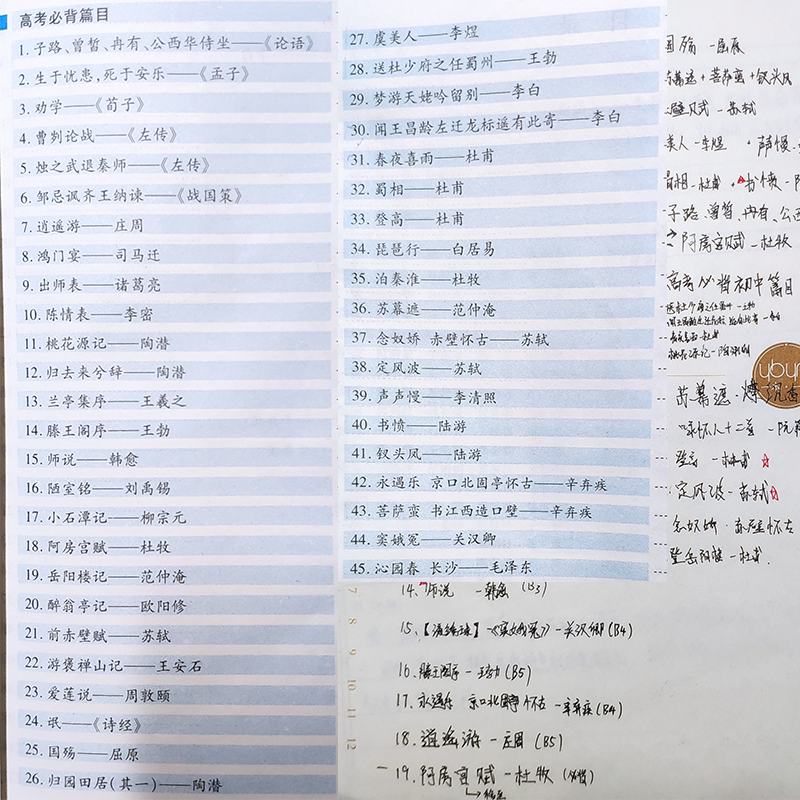 高考必背篇目
1. 子路、曾皙、冉有、公西华侍坐——《论语》
2. 生于忧患,死于安乐——《孟子》
3. 劝学——《荀子》
4. 曹刿论战——《左传》
5. 烛之武退秦师——《左传》
6. 邹忌讽齐王纳谏——《战国策》
7. 逍遥游——庄周
8. 鸿门宴——司马迁
9. 出师表——诸葛亮
10. 陈情表——李密
11. 桃花源记——陶潜
12. 归去来兮辞——陶潜
13. 兰亭集序——王羲之
14. 滕王阁序——王勃
15. 师说——韩愈
16. 陋室铭——刘禹锡
17. 小石潭记——柳宗元
18. 阿房宫赋——杜牧
19. 岳阳楼记——范仲淹
20. 醉翁亭记——欧阳修
21. 前赤壁赋——苏轼
22. 游褒禅山记——王安石
23. 爱莲说——周敦颐
24. 氓——《诗经》
25. 国殇——屈原
26. 归园田居(其一)——陶潜
27. 虞美人——李煜
28. 送杜少府之任蜀州——王勃
29. 梦游天姥吟留别——李白
30. 闻王昌龄左迁龙标遥有此寄——李白
31. 春夜喜雨——杜甫
32. 蜀相——杜甫
33. 登高——杜甫
34. 琵琶行——白居易
35. 泊秦淮——杜牧
36. 苏幕遮——范仲淹
37. 念奴娇 赤壁怀古——苏轼
38. 定风波——苏轼
39. 声声慢——李清照
40. 书愤——陆游
41. 钗头风——陆游
42. 永遇乐 京口北固亭怀古——辛弃疾
43. 菩萨蛮 书江西造口壁——辛弃疾
44. 窦娥冤——关汉卿
45. 沁园春 长沙——毛泽东
14. 师说 —韩愈 (B3)
15.《窦娥冤》—关汉卿(B4)
16. 滕王阁序 — 王勃(B5)
17. 永遇乐 京口北固亭怀古 —辛弃疾(B4)
18. 逍遥游 —庄周 (B5)
19. 阿房宫赋 —杜牧
7
8
9
10
11
12
国殇 —屈原
苏幕遮+菩萨蛮+钗头凤
赤壁赋 —苏轼
美人 —李煜 · 声慢
蜀相—杜甫 · 书愤 —陆
子路、曾皙、冉有、公西
阿房宫赋 —杜牧
高考必背初中篇目
苏幕遮·燎沉香
登高 —杜甫
定风波—苏轼
念奴娇·赤壁怀古
登岳阳楼—杜甫
ybyr